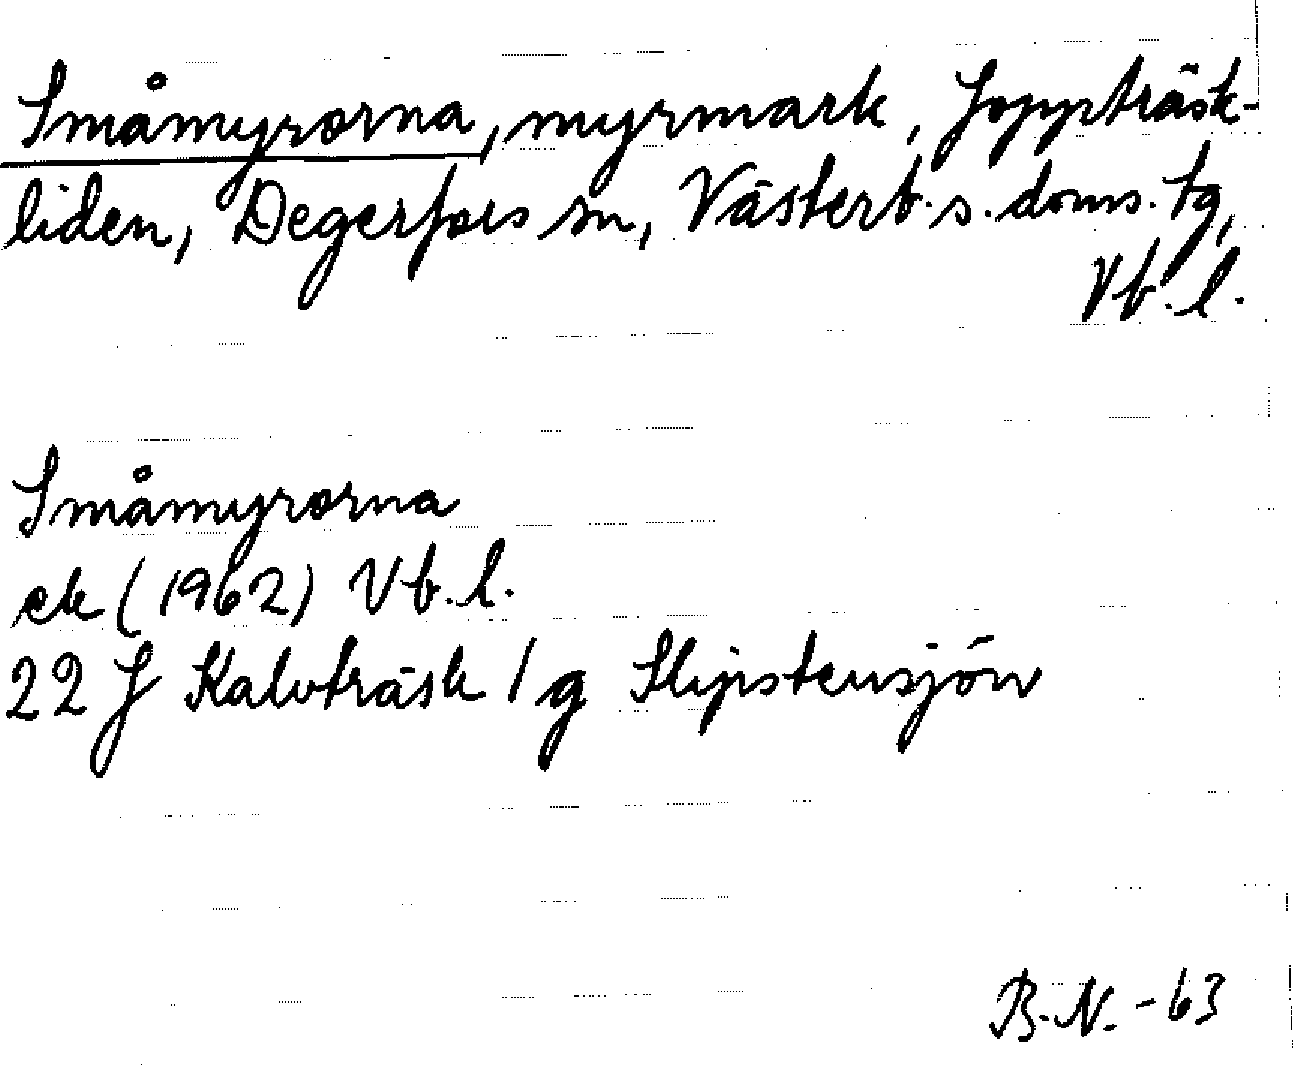 Småmyrorna, myrmark, Joppträsk-
liden, Degerfors sn, Västerb. s. doms. tg,
Vb. l.
Småmyrorna
ek (1962) Vb. l.
22 J Kalvträsk / g Slipstensjön
B. N. - 63